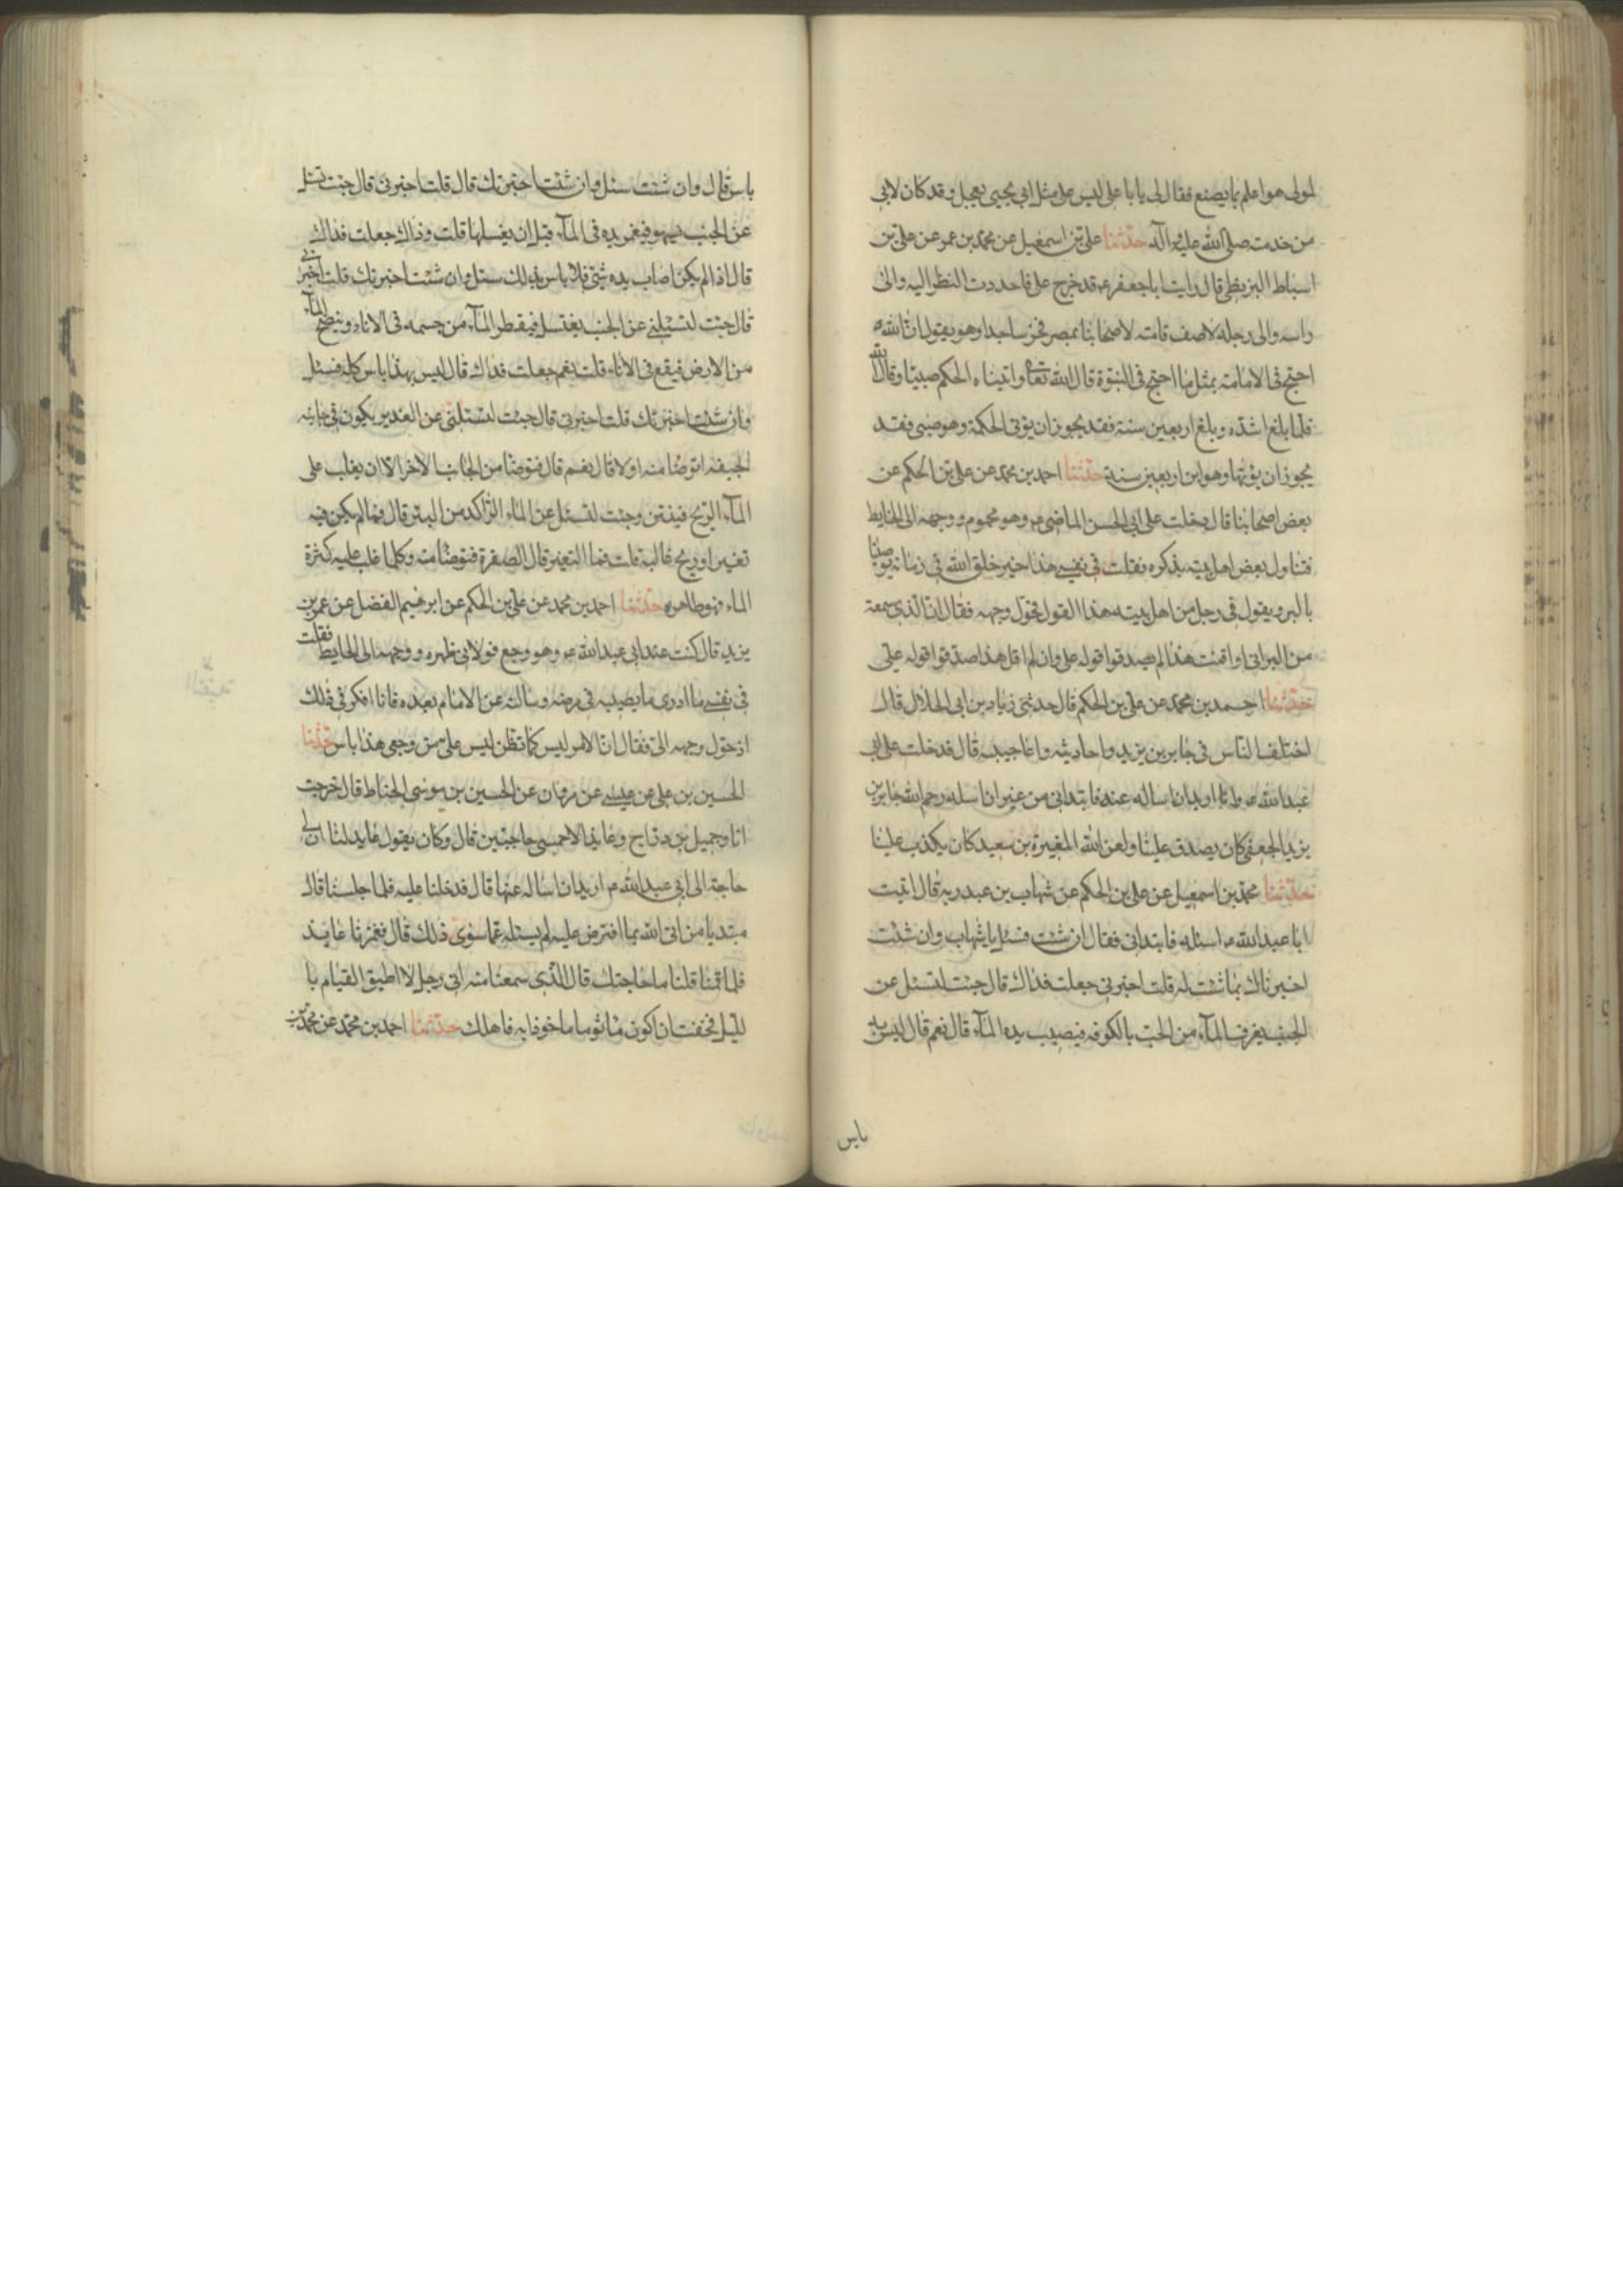 لمولى هو اعلم بما يصنع فقال لى يا با على ليس على مثل ابى يحيى يعجل و قد كان لابى
من خدمته صلى الله عليه وآله حدثنا على بن اسمعيل عن محمد بن عمر عن على بن
اسباط البزنطى قال رايت ابا جعفر ع قد خرج على فاحددت النظر اليه والى
راسه والى رجله لاصف قامته لاصحابنا بمصر فخر ساجدا وهو يقول ان الله
احتج فى الامامة بمثل ما احتج فى النبوة قال الله تعالى واتيناه الحكم صبيا وقال الله
فلما بلغ اشده وبلغ اربعين سنة فقد يجوز ان يؤتى الحكمة وهو صبى فقد
يجوز ان يؤتها وهو ابن اربعين سنة حدثنا احمد بن محمد عن على بن الحكم عن
بعض اصحابنا قال دخلت على ابى الحسن الماضى ع وهو محموم ووجهه الى الحايط
فتناول بعض اهل بيته بذكره فقلت فى نفسى هذا خير خلق الله فى زمانه يوصينا
بالبر ويقول فى رجل من اهل بيته هذا القول فحول وجهه فقال ان الذى سمعته
من البر انى اذا قلت هذا لم يصدقوا قوله على وان لم اقل هذا صدقوا قوله على
حدثنا احمد بن محمد عن على بن الحكم قال حدثنى زياد بن ابى الحلال قال
اختلف الناس فى جابر بن يزيد واحاديثه واعاجيبه قال فدخلت على ابى
عبد الله ع وانا اريد ان اساله عنه فابتدانى من غير ان اسله رحم الله جابر بن
يزيد الجعفى كان يصدق علينا ولعن الله المغيرة بن سعيد كان يكذب علينا
حدثنا محمد بن اسمعيل عن على بن الحكم عن شهاب بن عبد ربه قال اتيت
ابا عبد الله ع اسئله فابتدانى فقال ان شئت فسئل يا شهاب وان شئت
اخبرناك بما شئت له قلت اخبرنى جعلت فداك قال جئت لتسئل عن
الجنب يغرف الماء من الحب بالكوفه فيصيب يده الماء قال نعم قال ليس به
باس
باس قال وان شئت سئل وان شئت اخبرتك قال قلت اخبرنى قال جئت تسئل
عن الجنب يسهو فيغمر يده فى الماء قبل ان يغسلها قلت وذاك جعلت فداك
قال اذا لم يكن اصاب يده شئ فلا باس بذالك سئل وان شئت اخبرتك قلت اخبرنى
قال جئت لتسئلنى عن الجنب يغتسل فيقطر الماء من جسمه فى الاناء وينضح الماء
من الارض فيقع فى الاناء قلت نعم جعلت فداك قال ليس بهذا باس كله فسئل
وان شئت اخبرتك قلت اخبرنى قال جئت لتسئلنى عن الغدير يكون فى جانبه
الجيفة اتوضا منه او لا قال نعم قال فتوضا من الجانب الاخر الا ان يغلب على
الماء الريح فينتن وجئت لتسئل عن الماء الراكد من البئر قال فما لم يكن فيه
تغيير او ريح غالبة قلت فما التغير قال الصفرة فتوضا منه وكلما غلب عليه كثرة
الماء فهو طاهر حدثنا احمد بن محمد عن على بن الحكم عن ابرهيم الفضل عن عمر بن
يزيد قال كنت عند ابى عبد الله ع وهو وجع فولانى ظهره ووجهه الى الحايط فقلت
فى نفسى ما ادرى ما يصيبه فى مرضه وسالته عن الامام بعده فانا افكر فى ذلك
اذ حول وجهه الى فقال ان الامر ليس كما تظن ليس على من وجعى هذا باس حدثنا
الحسين بن على عن عيسى عن مروان عن الحسين بن موسى الحناط قال خرجت
انا وجميل بن دراج وعايذ الاحمسى حاجين قال وكان يقول عايد لنا ان لى
حاجة الى ابى عبد الله ع اريد ان اساله عنها قال فدخلنا عليه فلما جلسنا قال
مبتديا من اتى الله بما افترض عليه لم يسئله عما سوى ذلك قال فغمزنا عايذ
فلما قمنا قلنا ما حاجتك قال الذى سمعنا منه انى رجل لا اطيق القيام با
لليل فخفت ان اكون ماثوما ماخوذا به فاهلك حدثنا احمد بن محمد عن محمد بن